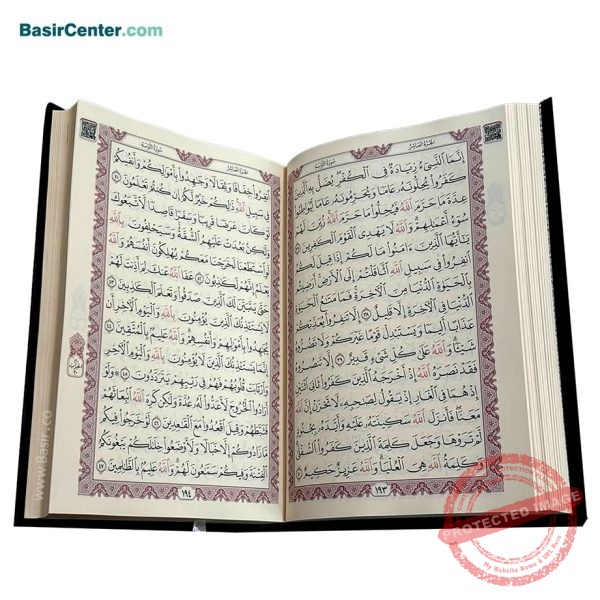 BasirCenter.com
الجُزءُ العَاشِر
سُورَةُ التَّوبَة
إِنَّمَا ٱلنَّسِىٓءُ زِيَادَةٌ فِى ٱلْكُفْرِ يُضَلُّ بِهِ ٱلَّذِينَ
كَفَرُوا۟ يُحِلُّونَهُۥ عَامًا وَيُحَرِّمُونَهُۥ عَامًا لِّيُوَاطِـُٔوا۟
عِدَّةَ مَا حَرَّمَ ٱللَّهُ فَيُحِلُّوا۟ مَا حَرَّمَ ٱللَّهُ زُيِّنَ لَهُمْ
سُوٓءُ أَعْمَـٰلِهِمْ وَٱللَّهُ لَا يَهْدِى ٱلْقَوْمَ ٱلْكَـٰفِرِينَ ٣٧
يَـٰٓأَيُّهَا ٱلَّذِينَ ءَامَنُوا۟ مَا لَكُمْ إِذَا قِيلَ لَكُمُ
ٱنفِرُوا۟ فِى سَبِيلِ ٱللَّهِ ٱثَّاقَلْتُمْ إِلَى ٱلْأَرْضِ أَرَضِيتُم
بِٱلْحَيَوٰةِ ٱلدُّنْيَا مِنَ ٱلْـَٔاخِرَةِ فَمَا مَتَـٰعُ ٱلْحَيَوٰةِ
ٱلدُّنْيَا فِى ٱلْـَٔاخِرَةِ إِلَّا قَلِيلٌ ٣٨ إِلَّا تَنفِرُوا۟ يُعَذِّبْكُمْ
عَذَابًا أَلِيمًا وَيَسْتَبْدِلْ قَوْمًا غَيْرَكُمْ وَلَا تَضُرُّوهُ
شَيْـًٔا وَٱللَّهُ عَلَىٰ كُلِّ شَىْءٍ قَدِيرٌ ٣٩ إِلَّا تَنصُرُوهُ
فَقَدْ نَصَرَهُ ٱللَّهُ إِذْ أَخْرَجَهُ ٱلَّذِينَ كَفَرُوا۟ ثَانِىَ ٱثْنَيْنِ
إِذْ هُمَا فِى ٱلْغَارِ إِذْ يَقُولُ لِصَـٰحِبِهِۦ لَا تَحْزَنْ إِنَّ ٱللَّهَ
مَعَنَا فَأَنزَلَ ٱللَّهُ سَكِينَتَهُۥ عَلَيْهِ وَأَيَّدَهُۥ بِجُنُودٍ
لَّمْ تَرَوْهَا وَجَعَلَ كَلِمَةَ ٱلَّذِينَ كَفَرُوا۟ ٱلسُّفْلَىٰ
وَكَلِمَةُ ٱللَّهِ هِىَ ٱلْعُلْيَا وَٱللَّهُ عَزِيزٌ حَكِيمٌ ٤٠
١٩٣
الجُزءُ العَاشِر
سُورَةُ التَّوبَة
ٱنفِرُوا۟ خِفَافًا وَثِقَالًا وَجَـٰهِدُوا۟ بِأَمْوَٰلِكُمْ وَأَنفُسِكُمْ
فِى سَبِيلِ ٱللَّهِ ذَٰلِكُمْ خَيْرٌ لَّكُمْ إِن كُنتُمْ تَعْلَمُونَ ٤١
لَوْ كَانَ عَرَضًا قَرِيبًا وَسَفَرًا قَاصِدًا لَّٱتَّبَعُوكَ
وَلَـٰكِنۢ بَعُدَتْ عَلَيْهِمُ ٱلشُّقَّةُ وَسَيَحْلِفُونَ بِٱللَّهِ
لَوِ ٱسْتَطَعْنَا لَخَرَجْنَا مَعَكُمْ يُهْلِكُونَ أَنفُسَهُمْ وَٱللَّهُ
يَعْلَمُ إِنَّهُمْ لَكَـٰذِبُونَ ٤٢ عَفَا ٱللَّهُ عَنكَ لِمَ أَذِنتَ لَهُمْ
حَتَّىٰ يَتَبَيَّنَ لَكَ ٱلَّذِينَ صَدَقُوا۟ وَتَعْلَمَ ٱلْكَـٰذِبِينَ ٤٣
لَا يَسْتَـْٔذِنُكَ ٱلَّذِينَ يُؤْمِنُونَ بِٱللَّهِ وَٱلْيَوْمِ ٱلْـَٔاخِرِ أَن
يُجَـٰهِدُوا۟ بِأَمْوَٰلِهِمْ وَأَنفُسِهِمْ وَٱللَّهُ عَلِيمٌۢ بِٱلْمُتَّقِينَ ٤٤
إِنَّمَا يَسْتَـْٔذِنُكَ ٱلَّذِينَ لَا يُؤْمِنُونَ بِٱللَّهِ وَٱلْيَوْمِ ٱلْـَٔاخِرِ
وَٱرْتَابَتْ قُلُوبُهُمْ فَهُمْ فِى رَيْبِهِمْ يَتَرَدَّدُونَ ٤٥ وَلَوْ
أَرَادُوا۟ ٱلْخُرُوجَ لَأَعَدُّوا۟ لَهُۥ عُدَّةً وَلَـٰكِن كَرِهَ ٱللَّهُ ٱنۢبِعَاثَهُمْ
فَثَبَّطَهُمْ وَقِيلَ ٱقْعُدُوا۟ مَعَ ٱلْقَـٰعِدِينَ ٤٦ لَوْ خَرَجُوا۟ فِيكُم
مَّا زَادُوكُمْ إِلَّا خَبَالًا وَلَأَوْضَعُوا۟ خِلَـٰلَكُمْ يَبْغُونَكُمُ
ٱلْفِتْنَةَ وَفِيكُمْ سَمَّـٰعُونَ لَهُمْ وَٱللَّهُ عَلِيمٌۢ بِٱلظَّـٰلِمِينَ ٤٧
١٩٤
www.Basir.co
PROTECTED IMAGE
My Website Name & URL Here